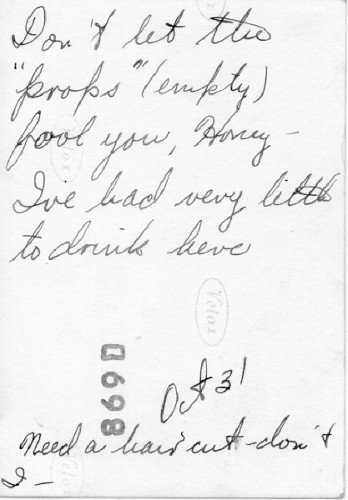 Don't let the
"props" (empty)
fool you, Honey -
I've had very little
to drink here
Velox
Velox
0698
Oct 31
Need a haircut - don't
I -